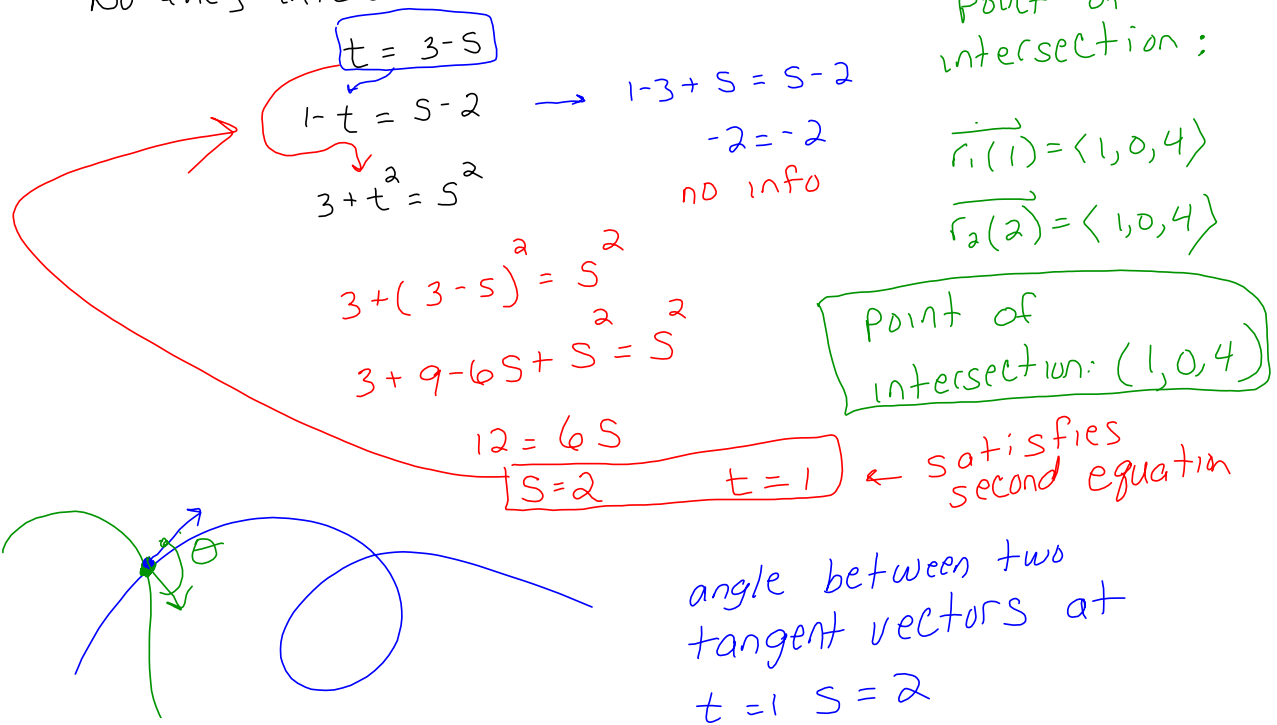 t = 3-s
1-t = s-2 → 1-3+s = s-2
-2 = -2
no info
3+t² = s²
3+(3-s)² = s²
3+9-6s+s² = s²
12 = 6s
s=2 t=1 ← satisfies second equation
intersection:
r₁(1) = ⟨1,0,4⟩
r₂(2) = ⟨1,0,4⟩
point of
intersection: (1,0,4)
θ
angle between two
tangent vectors at
t=1 s=2